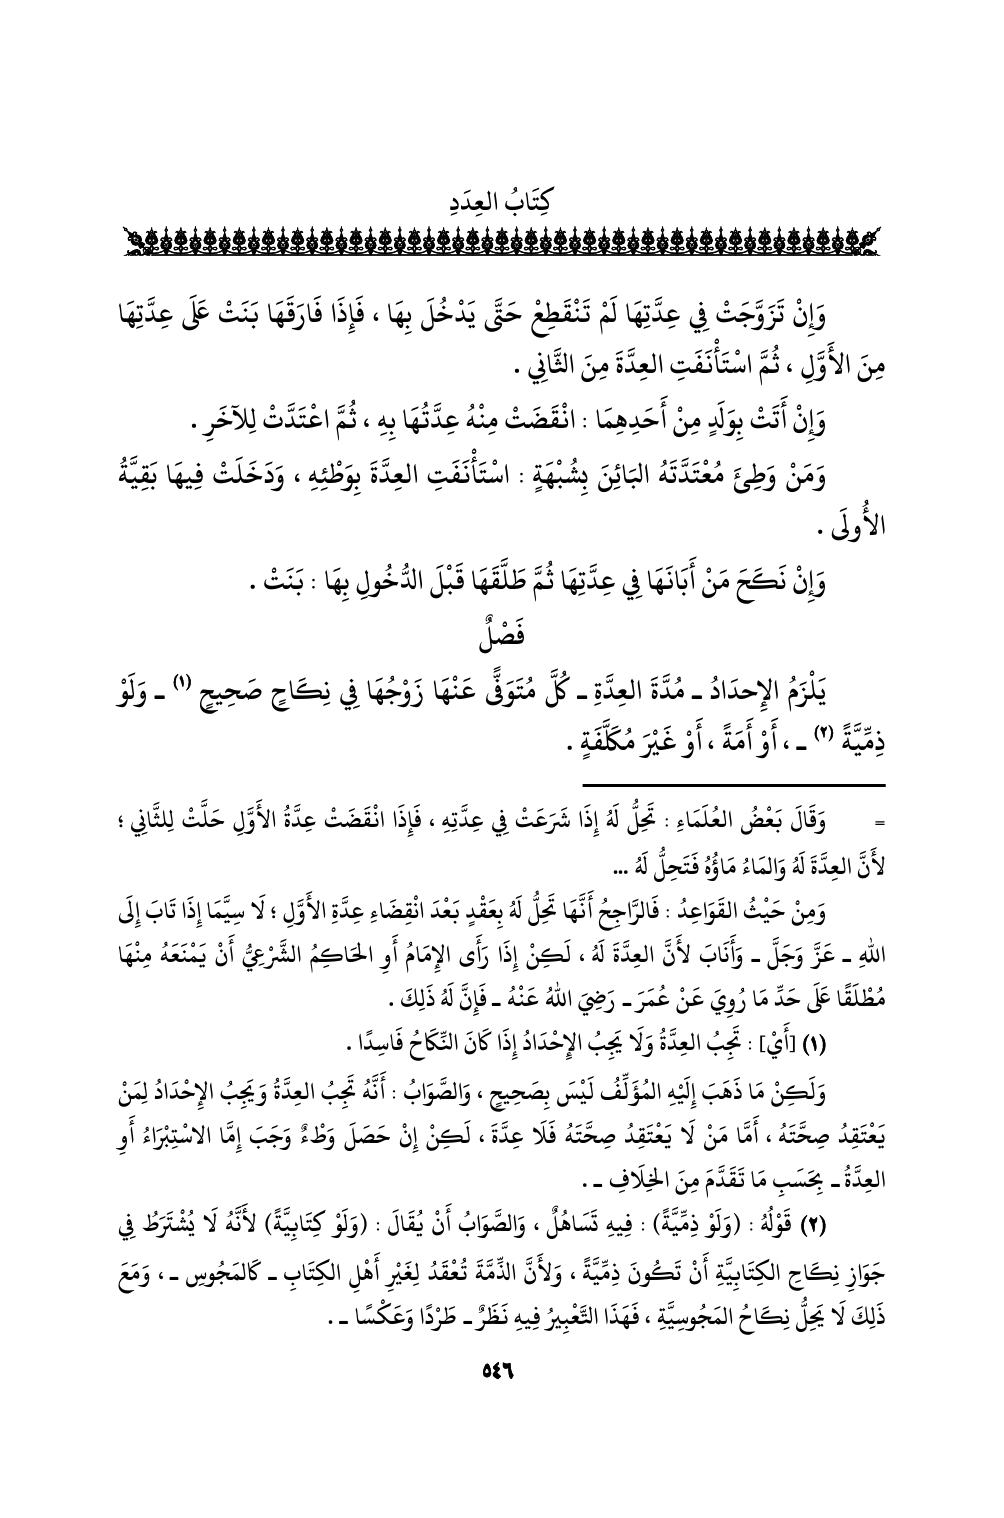 كِتَابُ العِدَدِ
وَإِنْ تَزَوَّجَتْ فِي عِدَّتِهَا لَمْ تَنْقَطِعْ حَتَّى يَدْخُلَ بِهَا ، فَإِذَا فَارَقَهَا بَنَتْ عَلَى عِدَّتِهَا
مِنَ الأَوَّلِ ، ثُمَّ اسْتَأْنَفَتِ العِدَّةَ مِنَ الثَّانِي .
وَإِنْ أَتَتْ بِوَلَدٍ مِنْ أَحَدِهِمَا : انْقَضَتْ مِنْهُ عِدَّتُهَا بِهِ ، ثُمَّ اعْتَدَّتْ لِلآخَرِ .
وَمَنْ وَطِئَ مُعْتَدَّتَهُ البَائِنَ بِشُبْهَةٍ : اسْتَأْنَفَتِ العِدَّةَ بِوَطْئِهِ ، وَدَخَلَتْ فِيهَا بَقِيَّةُ
الأُولَى .
وَإِنْ نَكَحَ مَنْ أَبَانَهَا فِي عِدَّتِهَا ثُمَّ طَلَّقَهَا قَبْلَ الدُّخُولِ بِهَا : بَنَتْ .
فَصْلٌ
يَلْزَمُ الإِحدَادُ ـ مُدَّةَ العِدَّةِ ـ كُلَّ مُتَوَفًّى عَنْهَا زَوْجُهَا فِي نِكَاحٍ صَحِيحٍ (١) ـ وَلَوْ
ذِمِّيَّةً (٢) ـ ، أَوْ أَمَةً ، أَوْ غَيْرَ مُكَلَّفَةٍ .
= وَقَالَ بَعْضُ العُلَمَاءِ : تَحِلُّ لَهُ إِذَا شَرَعَتْ فِي عِدَّتِهِ ، فَإِذَا انْقَضَتْ عِدَّةُ الأَوَّلِ حَلَّتْ لِلثَّانِي ؛
لأَنَّ العِدَّةَ لَهُ وَالمَاءُ مَاؤُهُ فَتَحِلُّ لَهُ ...
وَمِنْ حَيْثُ القَوَاعِدُ : فَالرَّاجِحُ أَنَّهَا تَحِلُّ لَهُ بِعَقْدٍ بَعْدَ انْقِضَاءِ عِدَّةِ الأَوَّلِ ؛ لَا سِيَّمَا إِذَا تَابَ إِلَى
اللهِ ـ عَزَّ وَجَلَّ ـ وَأَنَابَ لأَنَّ العِدَّةَ لَهُ ، لَكِنْ إِذَا رَأَى الإِمَامُ أَوِ الحَاكِمُ الشَّرْعِيُّ أَنْ يَمْنَعَهُ مِنْهَا
مُطْلَقًا عَلَى حَدِّ مَا رُوِيَ عَنْ عُمَرَ ـ رَضِيَ اللهُ عَنْهُ ـ فَإِنَّ لَهُ ذَلِكَ .
(١) [أَيْ] : تَجِبُ العِدَّةُ وَلَا يَجِبُ الإِحْدَادُ إِذَا كَانَ النِّكَاحُ فَاسِدًا .
وَلَكِنْ مَا ذَهَبَ إِلَيْهِ المُؤَلِّفُ لَيْسَ بِصَحِيحٍ ، وَالصَّوَابُ : أَنَّهُ تَجِبُ العِدَّةُ وَيَجِبُ الإِحْدَادُ لِمَنْ
يَعْتَقِدُ صِحَّتَهُ ، أَمَّا مَنْ لَا يَعْتَقِدُ صِحَّتَهُ فَلَا عِدَّةَ ، لَكِنْ إِنْ حَصَلَ وَطْءٌ وَجَبَ إِمَّا الاسْتِبْرَاءُ أَوِ
العِدَّةُ ـ بِحَسَبِ مَا تَقَدَّمَ مِنَ الخِلَافِ ـ .
(٢) قَوْلُهُ : (وَلَوْ ذِمِّيَّةً) : فِيهِ تَسَاهُلٌ ، وَالصَّوَابُ أَنْ يُقَالَ : (وَلَوْ كِتَابِيَّةً) لأَنَّهُ لَا يُشْتَرَطُ فِي
جَوَازِ نِكَاحِ الكِتَابِيَّةِ أَنْ تَكُونَ ذِمِّيَّةً ، وَلأَنَّ الذِّمَّةَ تُعْقَدُ لِغَيْرِ أَهْلِ الكِتَابِ ـ كَالمَجُوسِ ـ ، وَمَعَ
ذَلِكَ لَا يَحِلُّ نِكَاحُ المَجُوسِيَّةِ ، فَهَذَا التَّعْبِيرُ فِيهِ نَظَرٌ ـ طَرْدًا وَعَكْسًا ـ .
٥٤٦